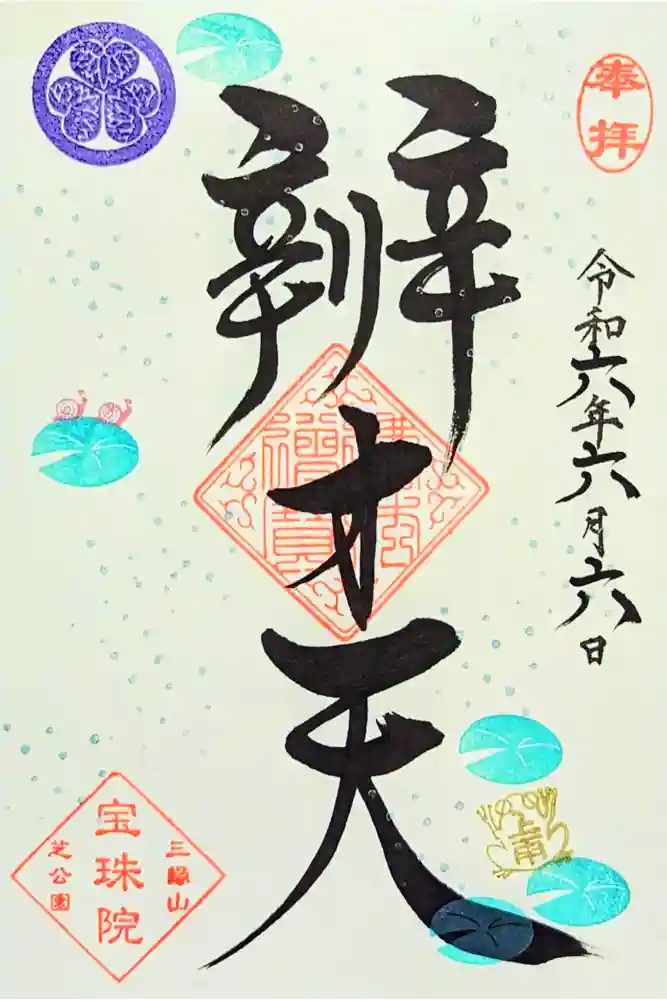 奉拝
令和六年六月六日
辨才天
三縁山
宝珠院
芝公園